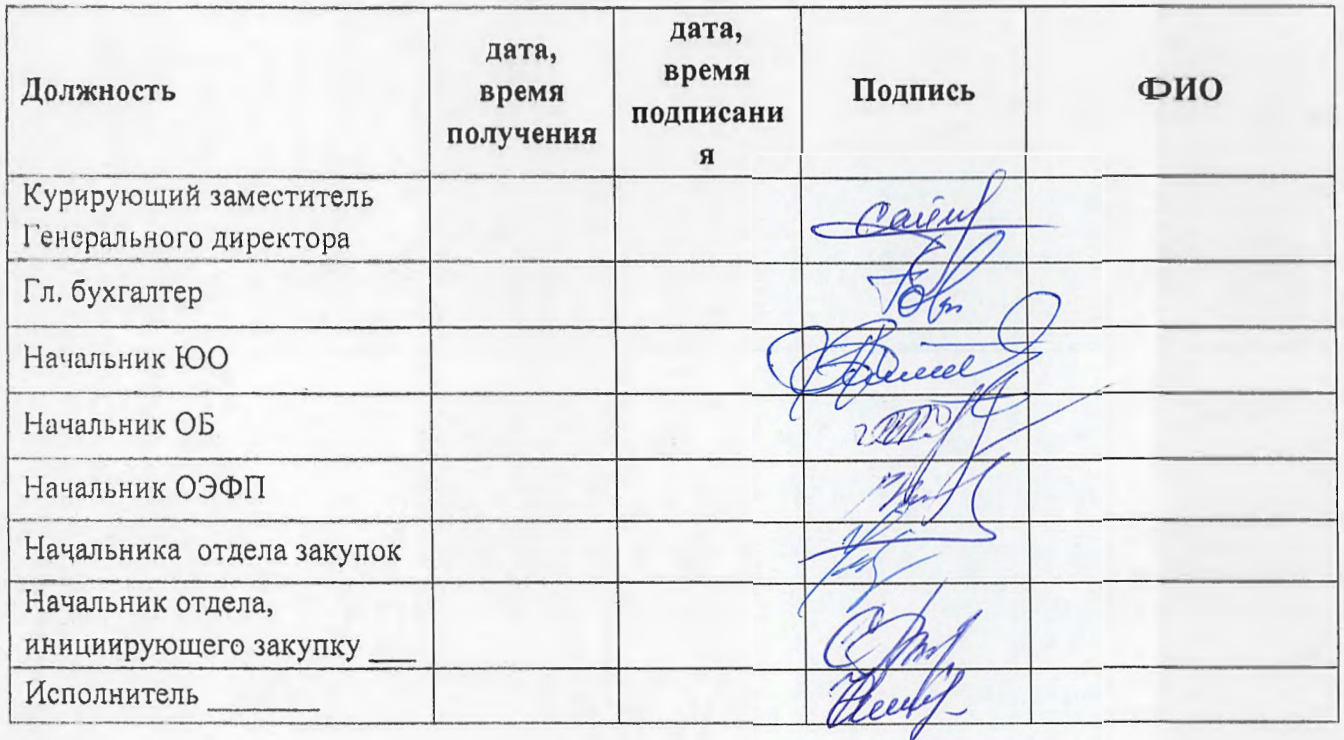 Должность
дата,
время
получения
дата,
время
подписани
я
Подпись
ФИО
Курирующий заместитель
Генерального директора
Гл. бухгалтер
Начальник ЮО
Начальник ОБ
Начальник ОЭФП
Начальника отдела закупок
Начальник отдела,
инициирующего закупку ___
Исполнитель ________